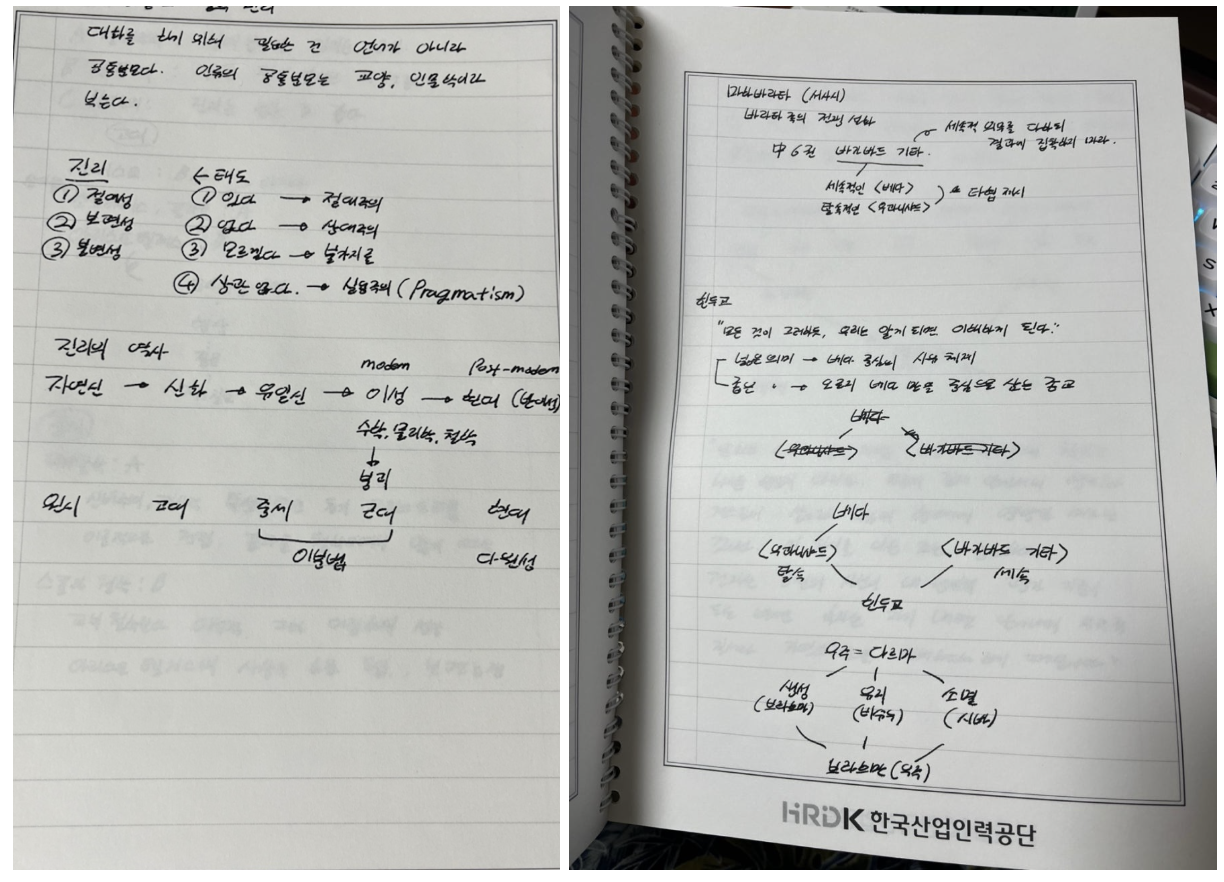 대화를 하기 위해 필요한 건 언어가 아니라
공통분모다. 인류의 공통분모는 교양, 인문학이라
보는다.
진리 ← 태도
① 절대성 ① 있다 → 절대주의
② 보편성 ② 없다 → 상대주의
③ 불변성 ③ 모르겠다 → 불가지론
④ 상관 없다. → 실용주의 (Pragmatism)
진리의 역사
modern Post-modern
자연신 → 신화 → 유일신 → 이성 → 현대 (반이성)
수학, 물리학, 철학
↓
분리
원시 고대 중세 근대 현대
이분법 다원성
마하바라타 (서사시)
바라타 족의 전쟁 설화
세속적 의무를 다하되
결과에 집착하지 마라.
中 6권 바가바드 기타.
세속적인 <베다>
탈속적인 <우파니샤드>
타협 제시
힌두교
"모든 것이 그러하듯, 우리는 알게 되면 이해하게 된다."
넓은 의미 → 베다 중심의 사상 체계
좁은 〃 → 오로지 베다 만을 중심으로 삼는 종교
베다
<우파니샤드> <바가바드 기타>
베다
<우파니샤드> <바가바드 기타>
탈속 세속
힌두교
우주 = 다르마
생성 유지 소멸
(브라흐마) (비슈누) (시바)
브라흐만 (우주)
HRDK 한국산업인력공단